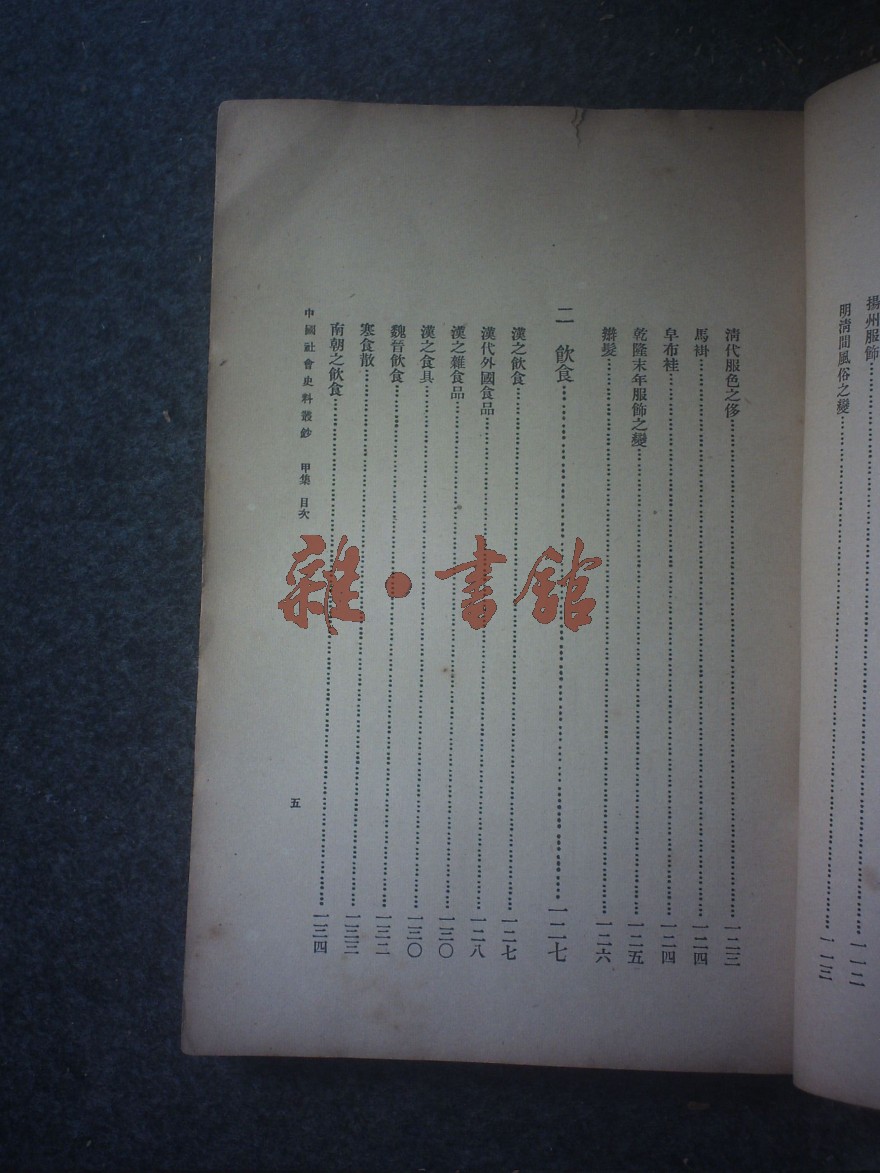 揚州服飾……一一二
明清間風俗之變……一一三
清代服色之侈……一二三
馬褂……一二四
皁布袿……一二四
乾隆末年服飾之變……一二五
辮髮……一二六
二 飲食……一二七
漢之飲食……一二七
漢代外國食品……一二八
漢之雜食品……一三〇
漢之食具……一三〇
魏晉飲食……一三二
寒食散……一三三
南朝之飲食……一三四
中國社會史料叢鈔 甲集 目次
五
雜•書館